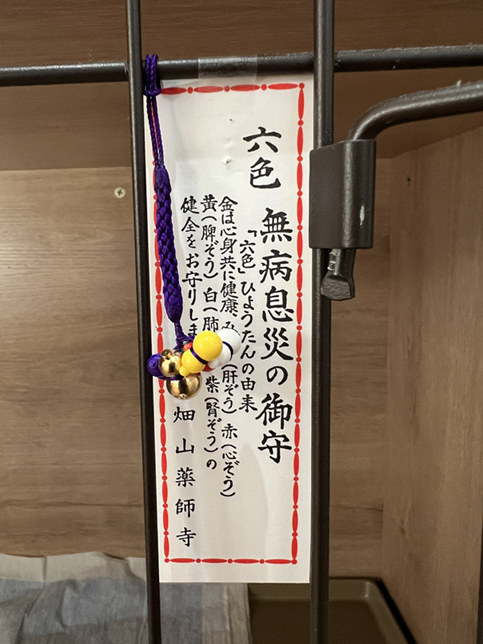 六色 無病息災の御守
「六色」ひょうたんの由来
金は心身共に健康、み (肝ぞう) 赤(心ぞう)
黄(脾ぞう) 白(肺 紫(腎ぞう)の
健全をお守りしま
畑山薬師寺